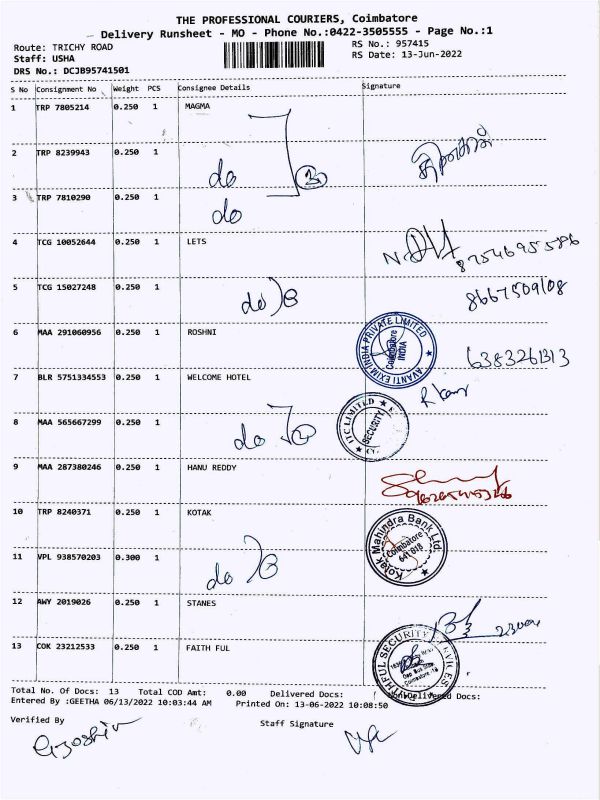 THE PROFESSIONAL COURIERS, Coimbatore
Delivery Runsheet - MO - Phone No.:0422-3505555 - Page No.:1
Route: TRICHY ROAD
Staff: USHA
DRS No.: DCJB95741501
RS No.: 957415
RS Date: 13-Jun-2022
S No Consignment No Weight PCS Consignee Details Signature
1 TRP 7805214 0.250 1 MAGMA
2 TRP 8239943 0.250 1 do
3 TRP 7810290 0.250 1 do
4 TCG 10052644 0.250 1 LETS
5 TCG 15027248 0.250 1 do 8667509108
6 MAA 291060956 0.250 1 ROSHNI 6383261313
AVANTI EXIM INDIA PRIVATE LIMITED
Coimbatore
INDIA
7 BLR 5751334553 0.250 1 WELCOME HOTEL
8 MAA 565667299 0.250 1 do
ITC LIMITED
SECURITY
9 MAA 287380246 0.250 1 HANU REDDY
10 TRP 8240371 0.250 1 KOTAK
Kotak Mahindra Bank Ltd.
Coimbatore
641 018
11 VPL 938570203 0.300 1 do
12 AWY 2019026 0.250 1 STANES
13 COK 23212533 0.250 1 FAITH FUL
Total No. Of Docs: 13 Total COD Amt: 0.00 Delivered Docs: Non Delivered Docs:
Entered By :GEETHA 06/13/2022 10:03:44 AM Printed On: 13-06-2022 10:08:50
Verified By
Staff Signature